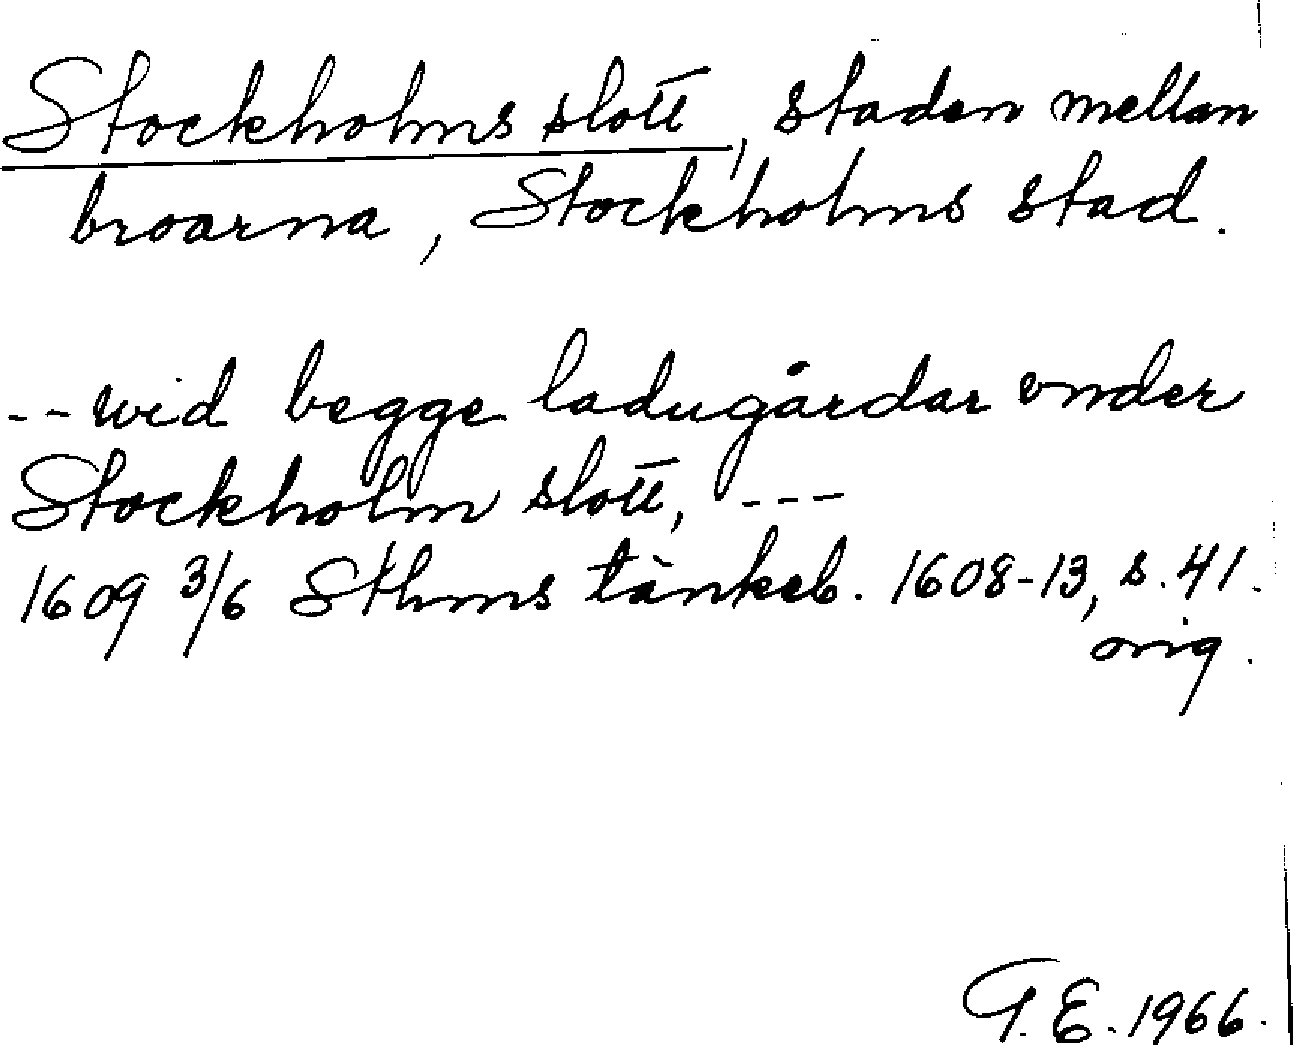 Stockholms slott, staden mellan
broarna, Stockholms stad.
-- wid begge ladugårdar vnder
Stockholm slott, ---
1609 3/6 Sthms tänkeb. 1608-13, s. 41.
orig.
G. E. 1966.